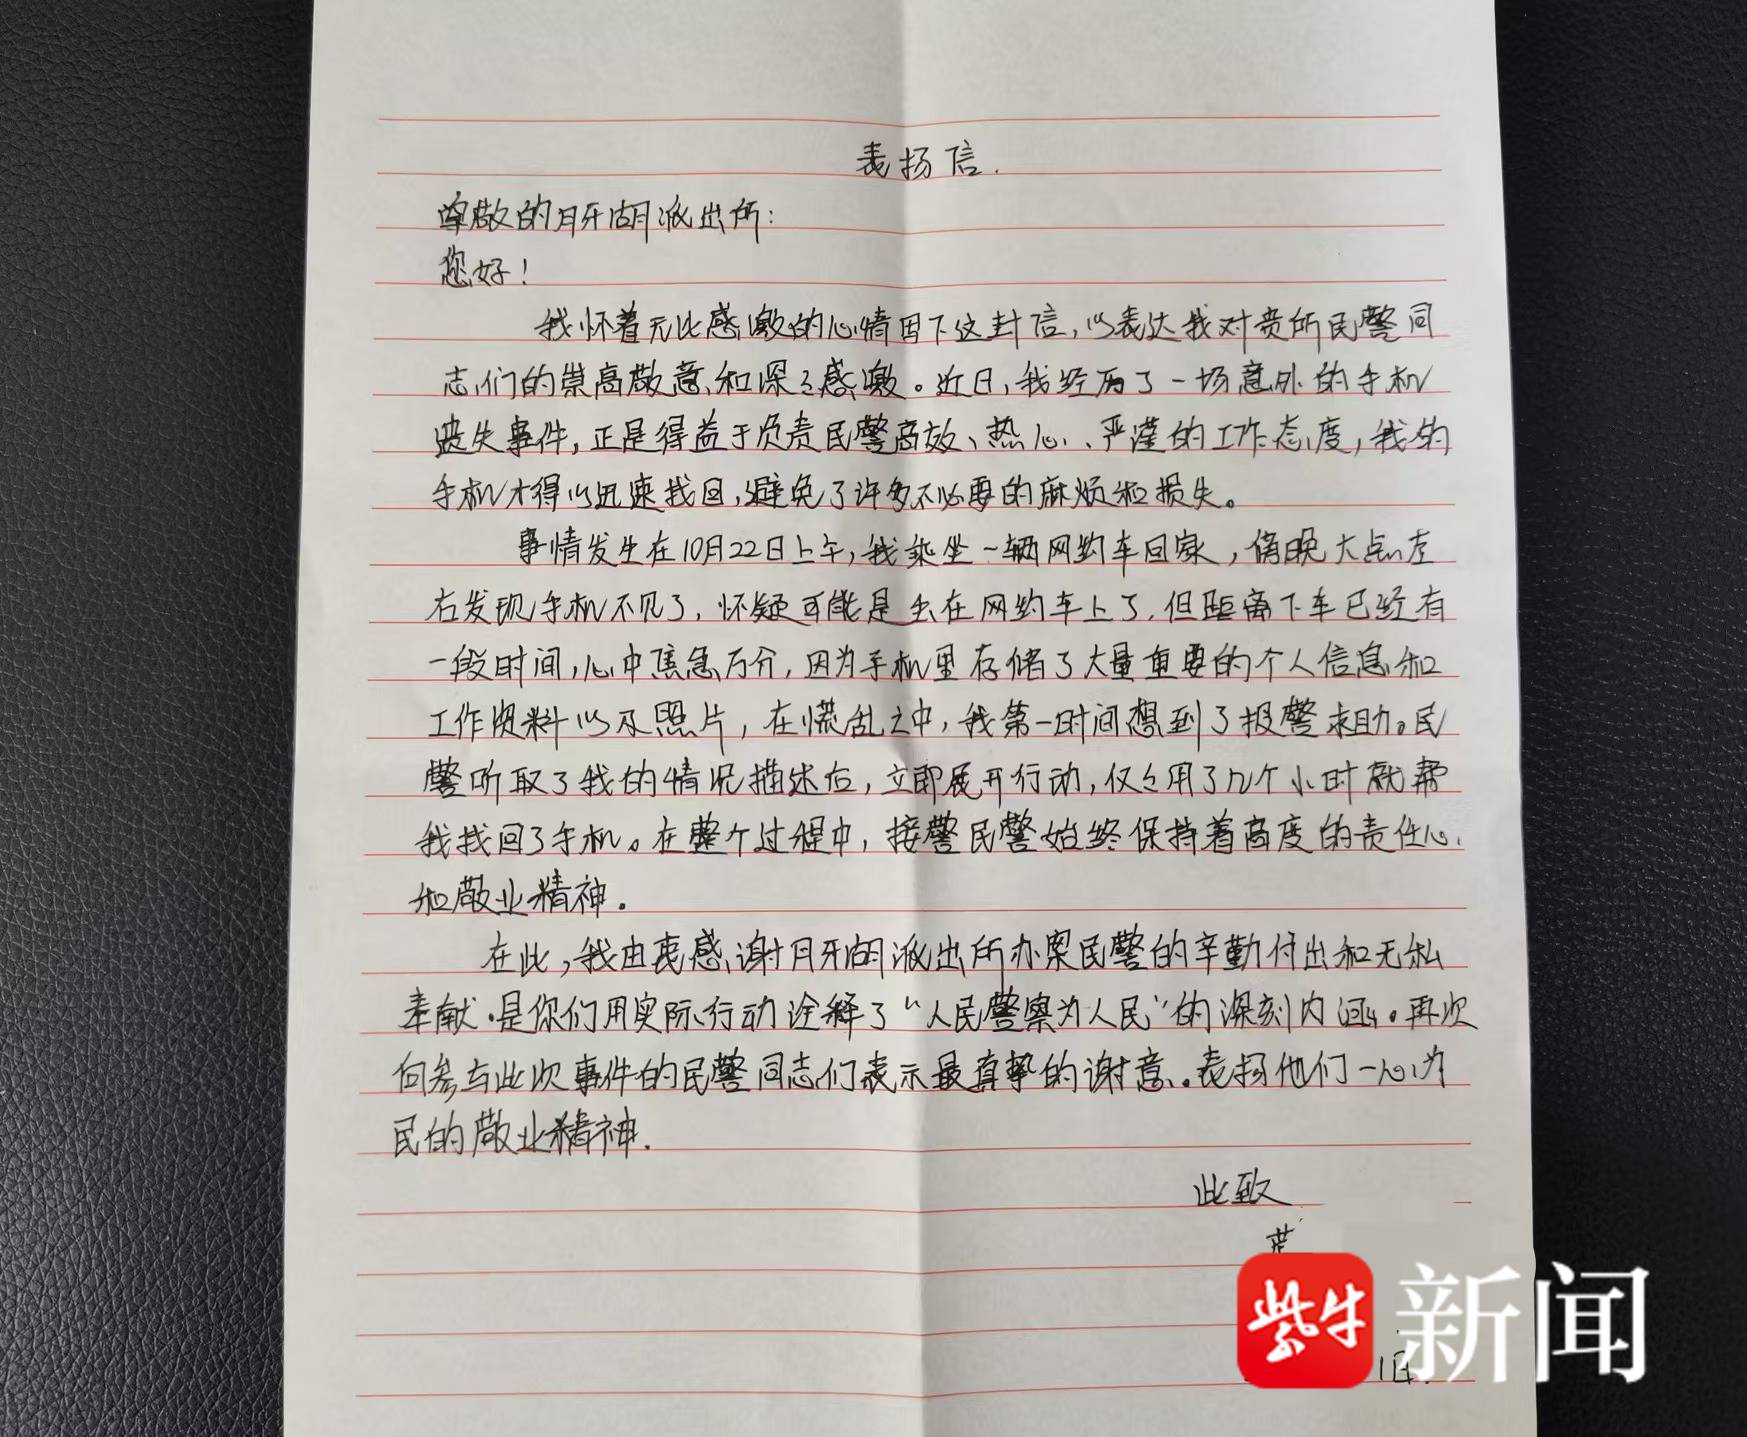 表扬信.
尊敬的月牙湖派出所:
您好!
我怀着无比感激的心情写下这封信,以表达我对贵所民警同
志们的崇高敬意和深深感激。近日,我经历了一场意外的手机
遗失事件,正是得益于负责民警高效、热心、严谨的工作态度,我的
手机才得以迅速找回,避免了许多不必要的麻烦和损失。
事情发生在10月22日上午,我乘坐一辆网约车回家,傍晚六点左
右发现手机不见了,怀疑可能是丢在网约车上了,但距离下车已经有
一段时间,心中焦急万分,因为手机里存储了大量重要的个人信息和
工作资料以及照片,在慌乱之中,我第一时间想到了报警求助。民
警听取了我的情况描述后,立即展开行动,仅仅用了几个小时就帮
我找回了手机。在整个过程中,接警民警始终保持着高度的责任心
和敬业精神.
在此,我由衷感谢月牙湖派出所办案民警的辛勤付出和无私
奉献.是你们用实际行动诠释了“人民警察为人民”的深刻内涵。再次
向参与此次事件的民警同志们表示最真挚的谢意。表扬他们一心为
民的敬业精神.
此致
紫牛新闻
1日.